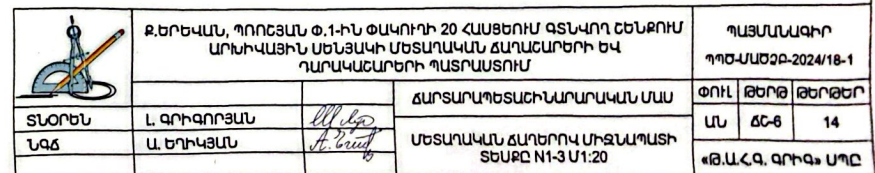 Ք.ԵՐԵՎԱՆ, ՊՌՈՇՅԱՆ Փ.1-ԻՆ ՓԱԿՈՒՂԻ 20 ՀԱՍՑԵՈՒՄ ԳՏՆՎՈՂ ՇԵՆՔՈՒՄ
ԱՐԽԻՎԱՅԻՆ ՍԵՆՅԱԿԻ ՄԵՏԱՂԱԿԱՆ ՃԱՂԱՇԱՐԵՐԻ ԵՎ
ԴԱՐԱԿԱՇԱՐԵՐԻ ՊԱՏՐԱՍՏՈՒՄ
ՊԱՅՄԱՆԱԳԻՐ
ՊՊԾ-ՄԱԾՁԲ-2024/18-1
ՃԱՐՏԱՐԱՊԵՏԱՇԻՆԱՐԱՐԱԿԱՆ ՄԱՍ
ՓՈՒԼ ԹԵՐԹ ԹԵՐԹԵՐ
ՏՆՕՐԵՆ Լ. ԳՐԻԳՈՐՅԱՆ
ԱՆ ՃՇ-6 14
ՆԳՃ Ա. ԵՂԻԿՅԱՆ
ՄԵՏԱՂԱԿԱՆ ՃԱՂԵՐՈՎ ՄԻՋՆԱՊԱՏԻ
ՏԵՍՔԸ N1-3 Մ1:20
«Թ.Ա.Հ.Գ. ԳՐԻԳ» ՍՊԸ